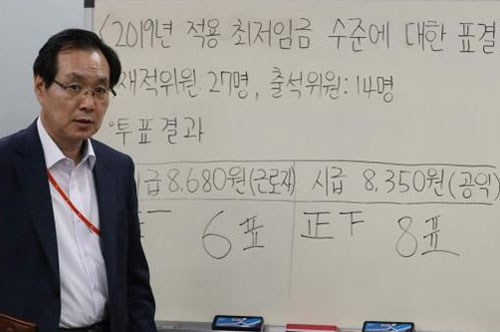 <2019년 적용 최저임금 수준에 대한 표결
재적위원: 27명, 출석위원: 14명
·투표결과
시급 8,680원(근로자) 시급 8,350원(공익)
6표 正下 8표